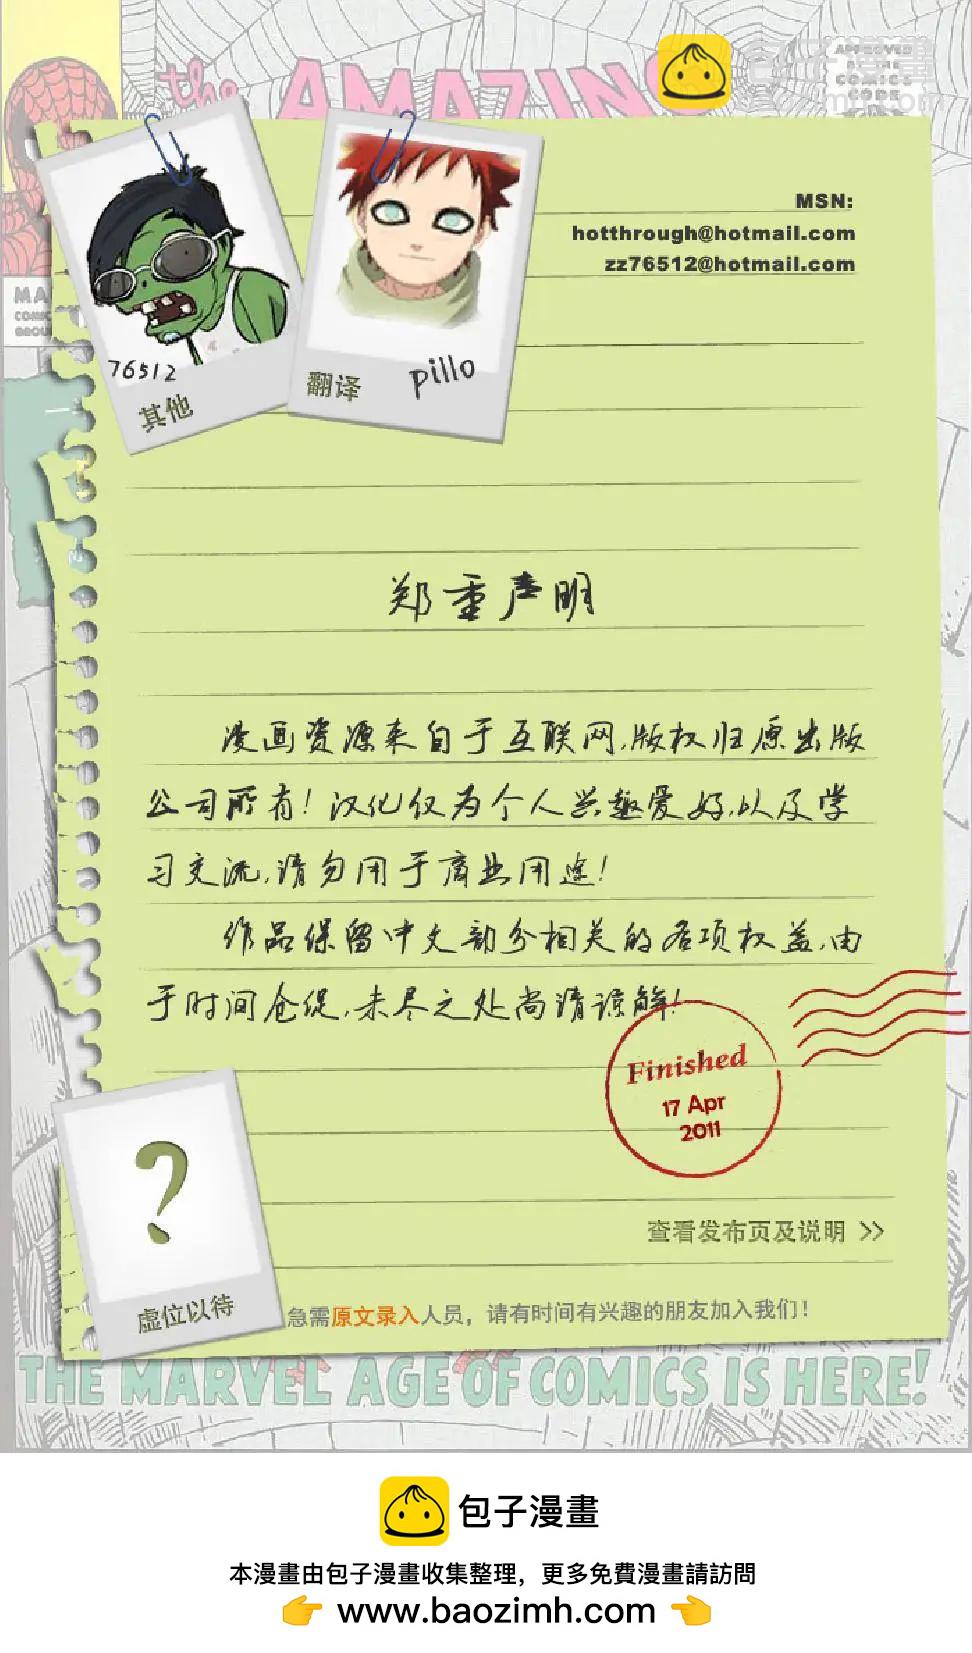 the AMAZING
包子漫畫
baozimh.com
APPROVED
BY THE
COMICS
CODE
MSN:
hotthrough@hotmail.com
zz76512@hotmail.com
76512
其他
翻译
pillo
郑重声明
漫画资源来自于互联网,版权归原出版
公司所有!汉化仅为个人兴趣爱好,以及学
习交流,请勿用于商业用途!
作品保留中文部分相关的各项权益,由
于时间仓促,未尽之处尚请谅解!
Finished
17 Apr
2011
?
虚位以待
查看发布页及说明 >>
急需原文录入人员，请有时间有兴趣的朋友加入我们！
THE MARVEL AGE OF COMICS IS HERE!
包子漫畫
本漫畫由包子漫畫收集整理，更多免費漫畫請訪問
👉 www.baozimh.com 👈